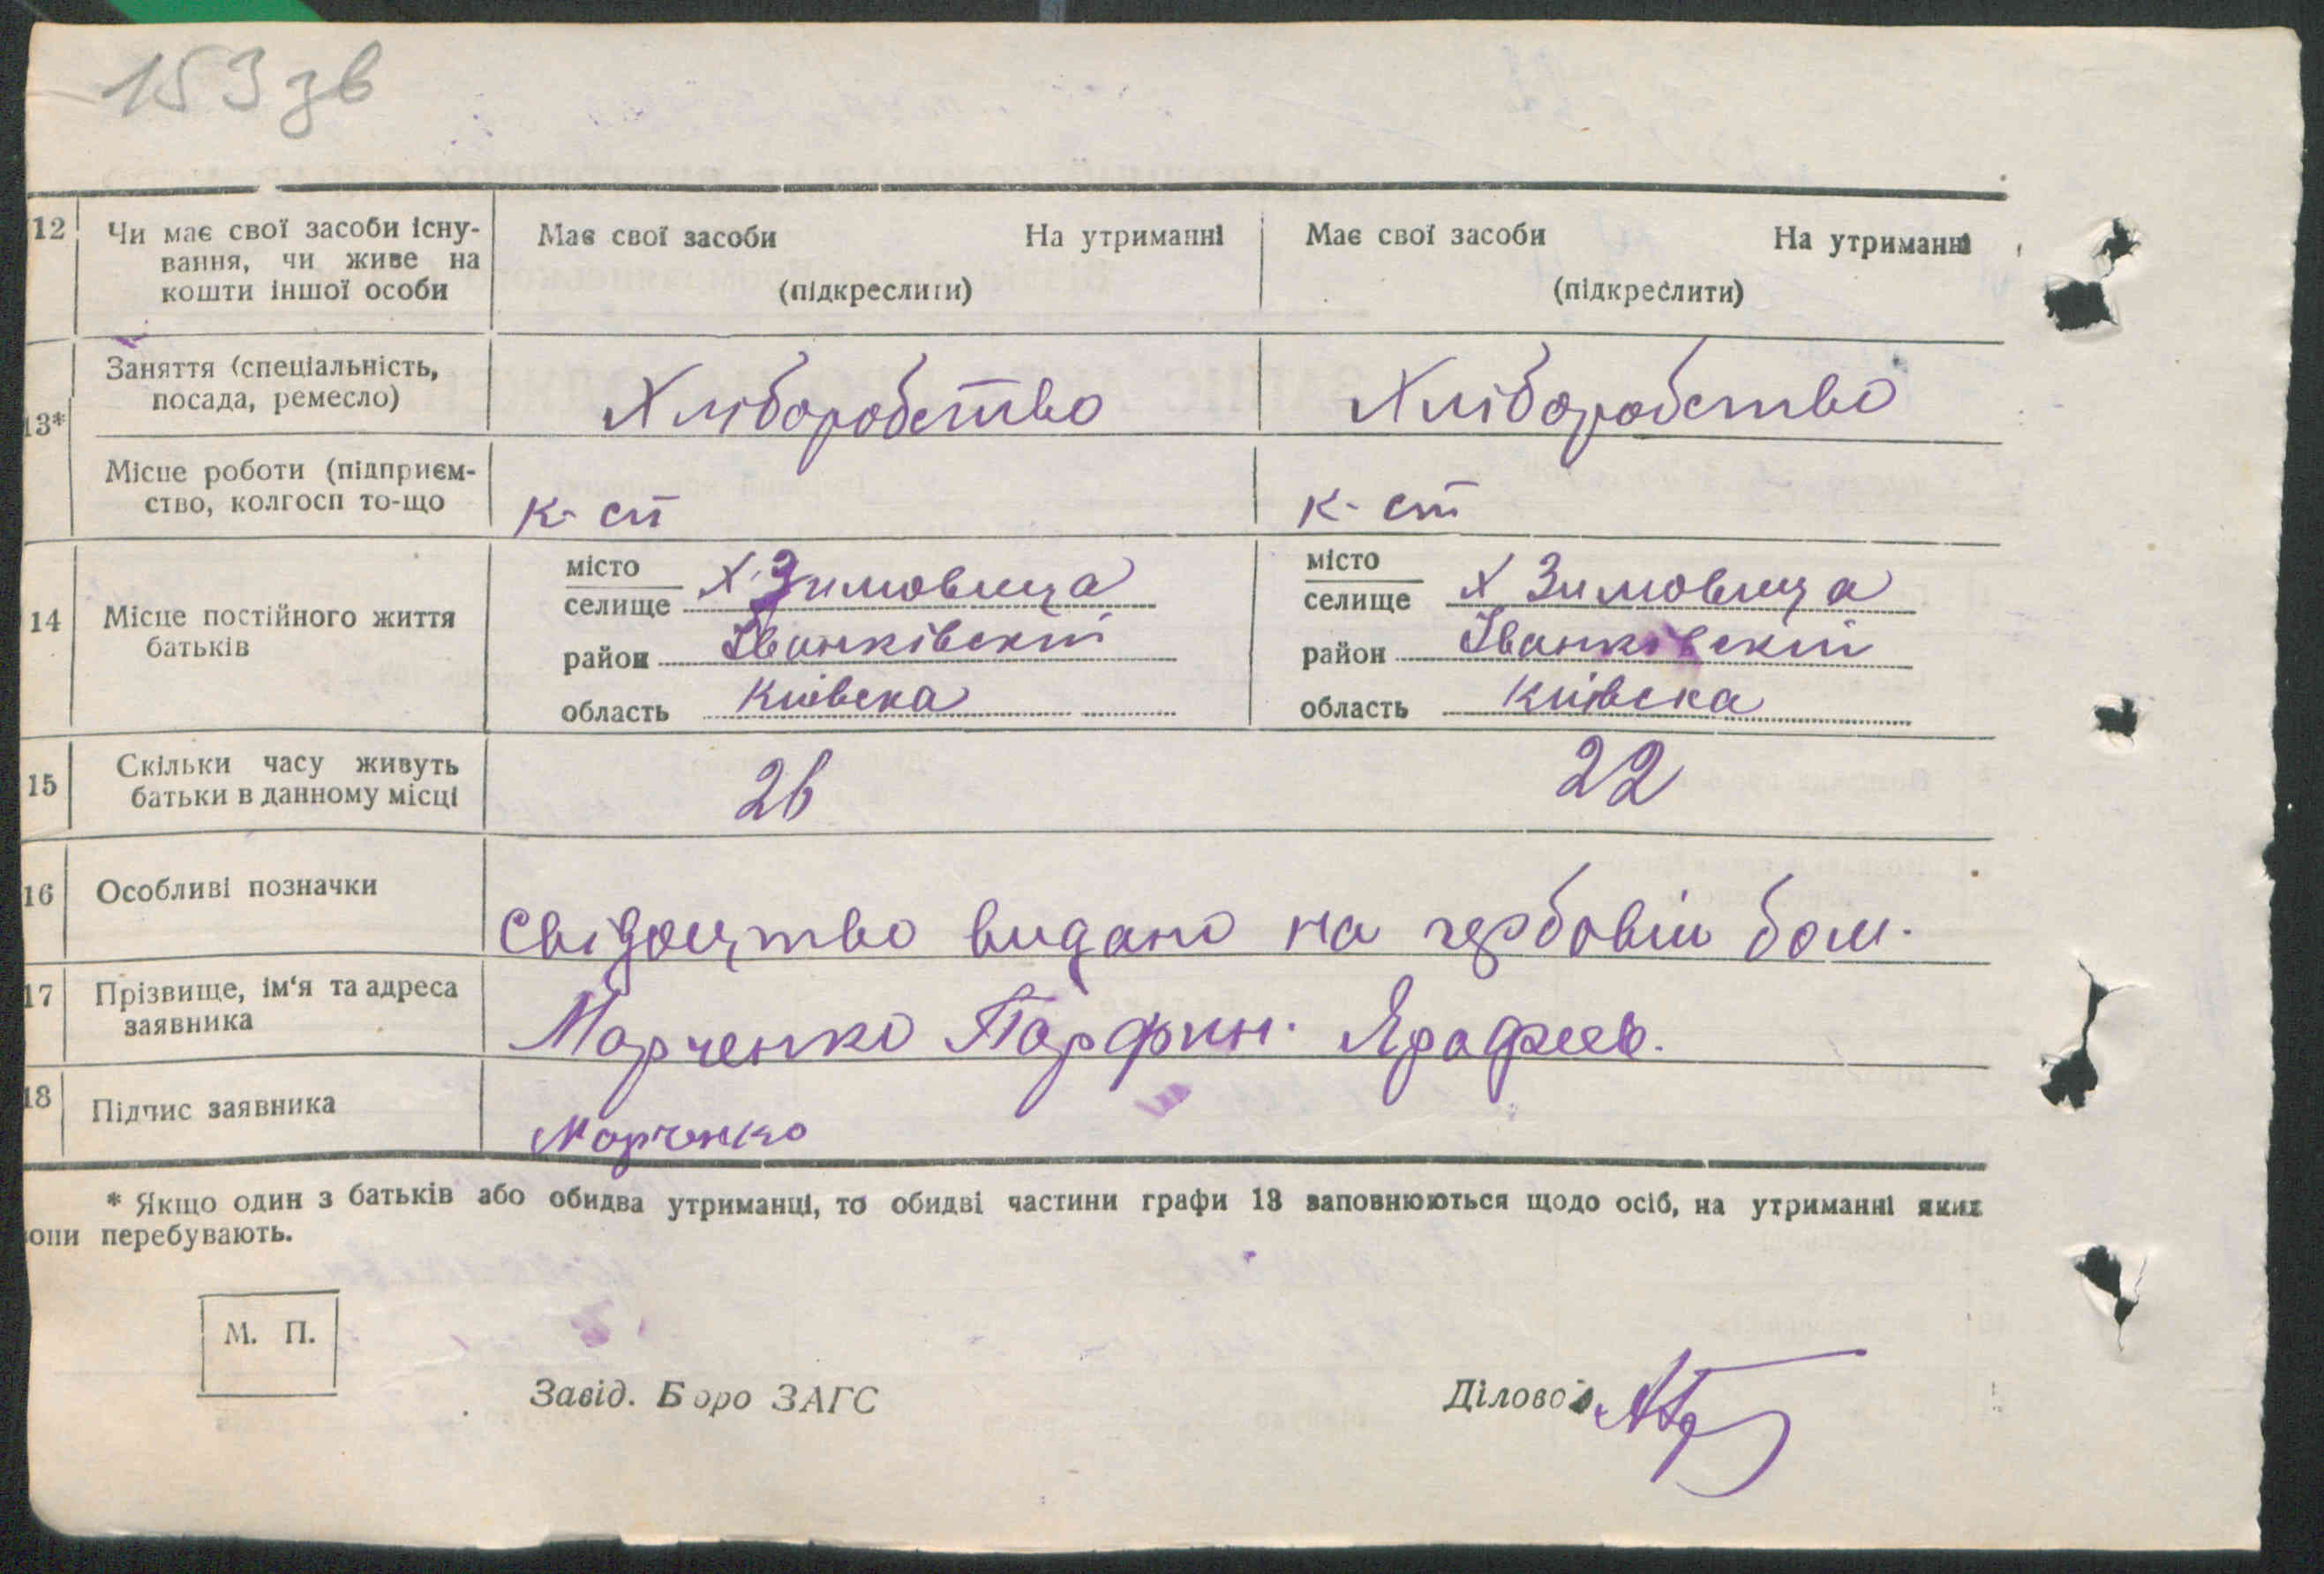 153 зв
12 Чи має свої засоби існу- Має свої засоби На утриманні Має свої засоби На утриманні
вання, чи живе на
кошти іншої особи (підкреслити) (підкреслити)
Заняття (спеціальність,
посада, ремесло) Хліборобство Хліборобство
13*
Місце роботи (підприєм-
ство, колгосп то-що к-ст к-ст
місто місто
селище х Зимовища селище х Зимовища
14 Місце постійного життя
батьків район Іванківский район Іванківский
область Київска область Київска
15 Скільки часу живуть
батьки в данному місці 26 22
16 Особливі позначки
Свідоцтво видано на гербовім бом.
17 Прізвище, ім'я та адреса
заявника Марченко Парфин. Ярафеев.
18 Підпис заявника
Марченко
* Якщо один з батьків або обидва утриманці, то обидві частини графи 13 заповнюються щодо осіб, на утриманні яких
вони перебувають.
М. П.
Завід. Бюро ЗАГС Діловод